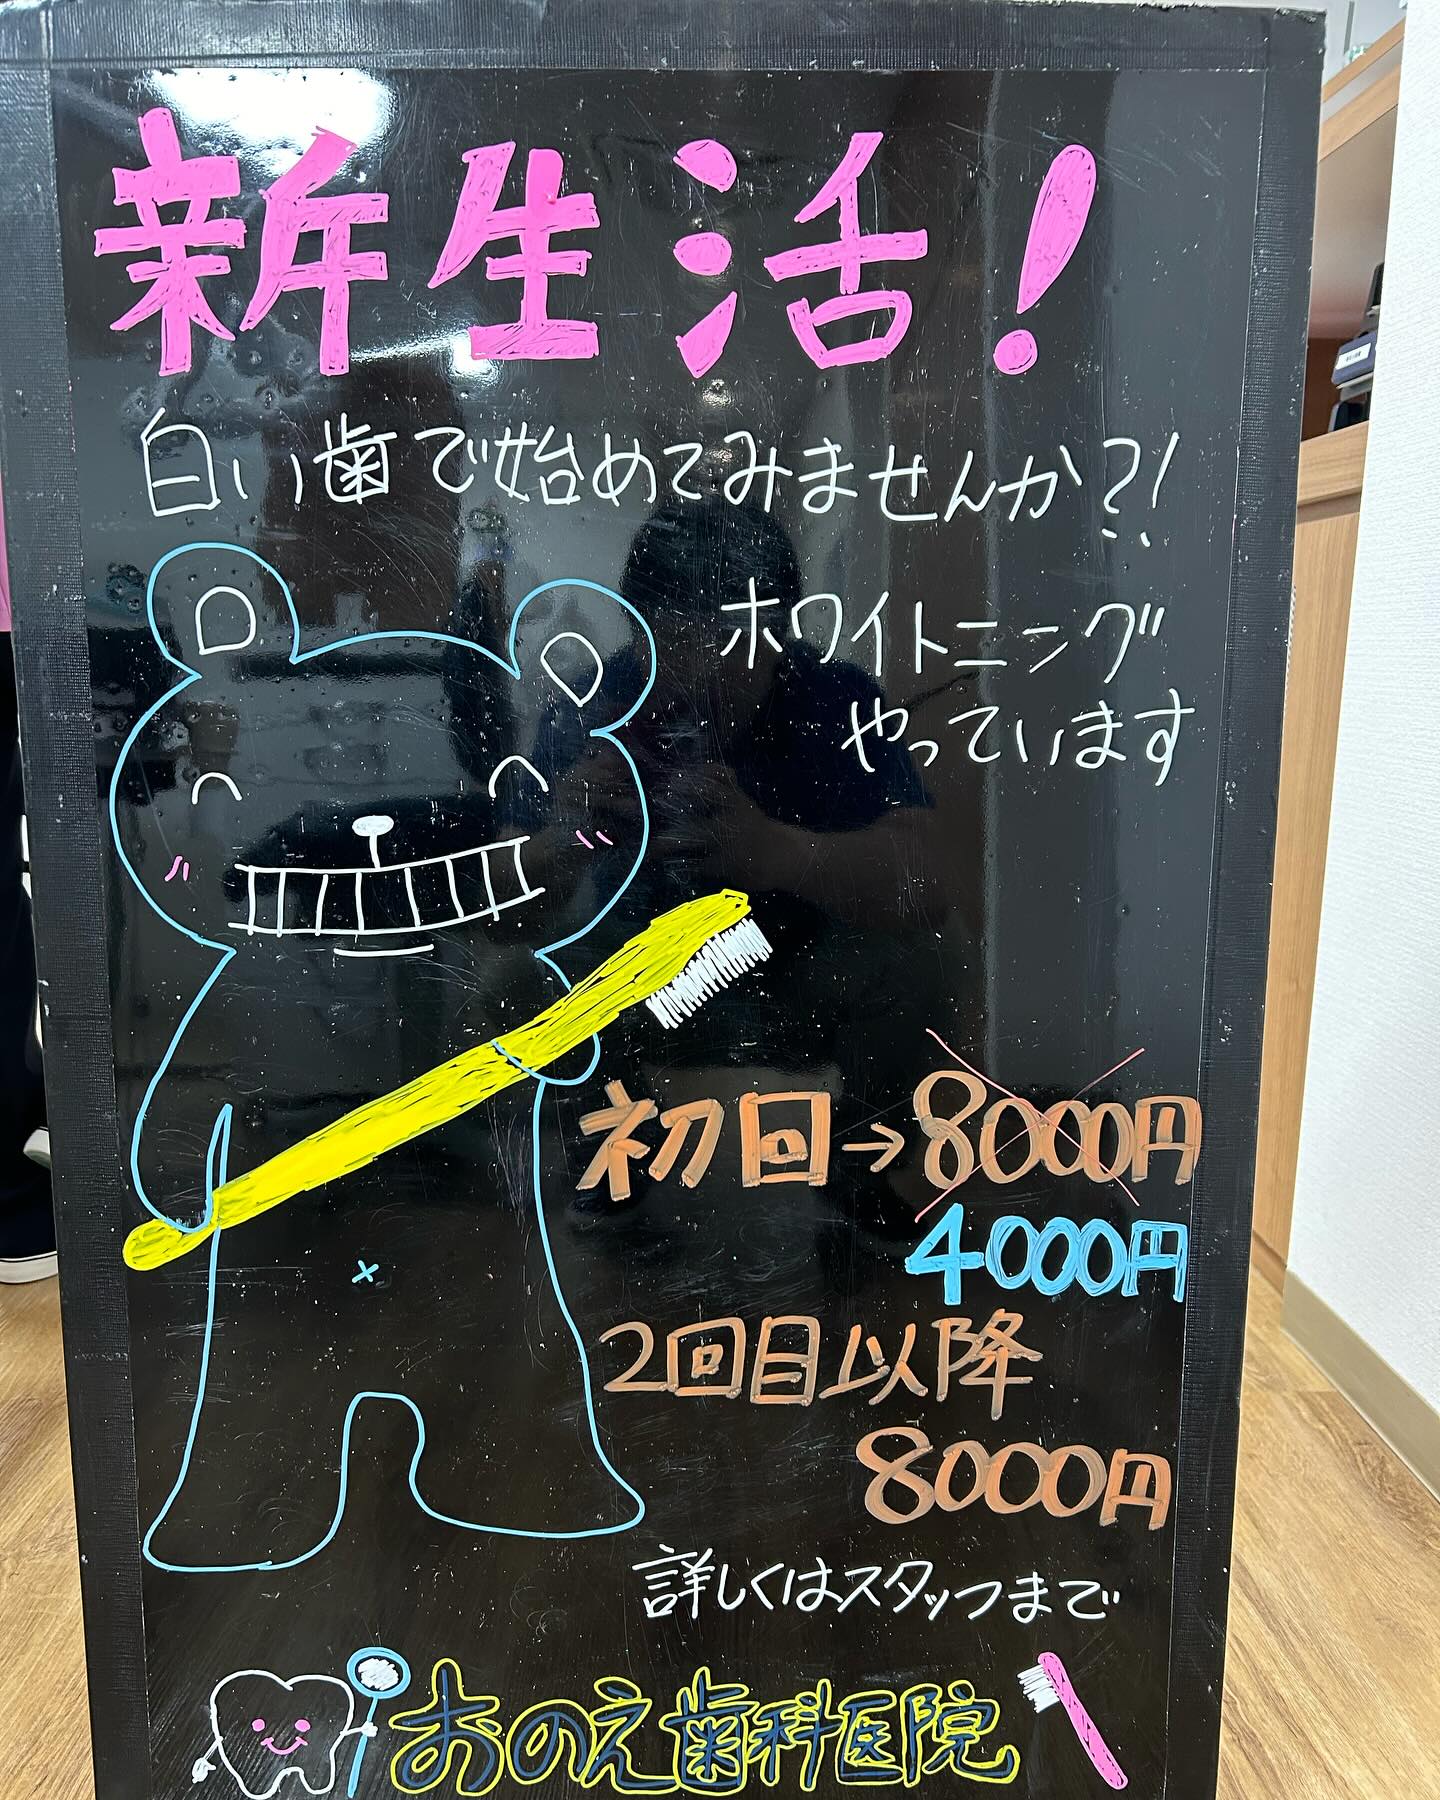 新生活!
白い歯で始めてみませんか?!
ホワイトニング
やっています
初回→8000円
4000円
2回目以降
8000円
詳しくはスタッフまで
おのえ歯科医院